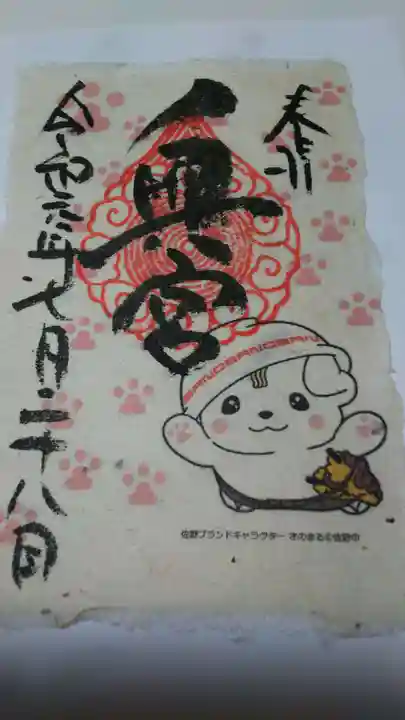 奉拝
一興宮
令和元年七月二十八日
SANOBRANDSANOBRAN
佐野ブランドキャラクター さのまる©佐野市